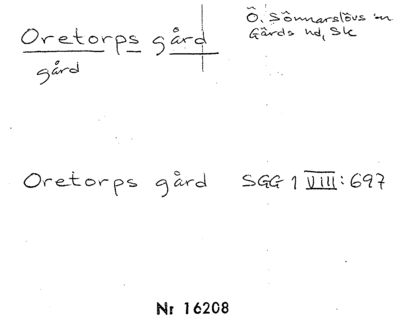 Oretorps gård
gård
Ö. Sönnarslövs sn
Gärds hd, Sk
Oretorps gård SGG 1 VIII:697
Nr 16208